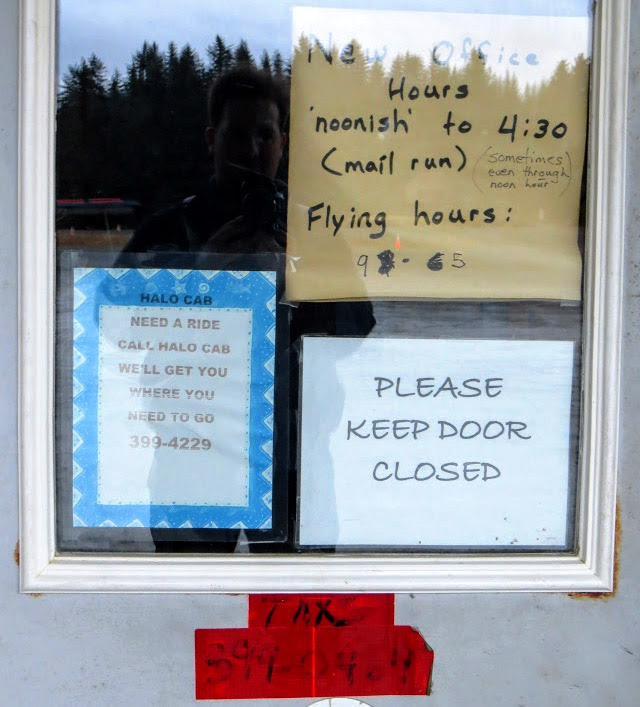 New Office
Hours
'noonish' to 4:30
(mail run) (sometimes
even through
noon hour)
Flying hours:
9 - 5
HALO CAB
NEED A RIDE
CALL HALO CAB
WE'LL GET YOU
WHERE YOU
NEED TO GO
399-4229
PLEASE
KEEP DOOR
CLOSED